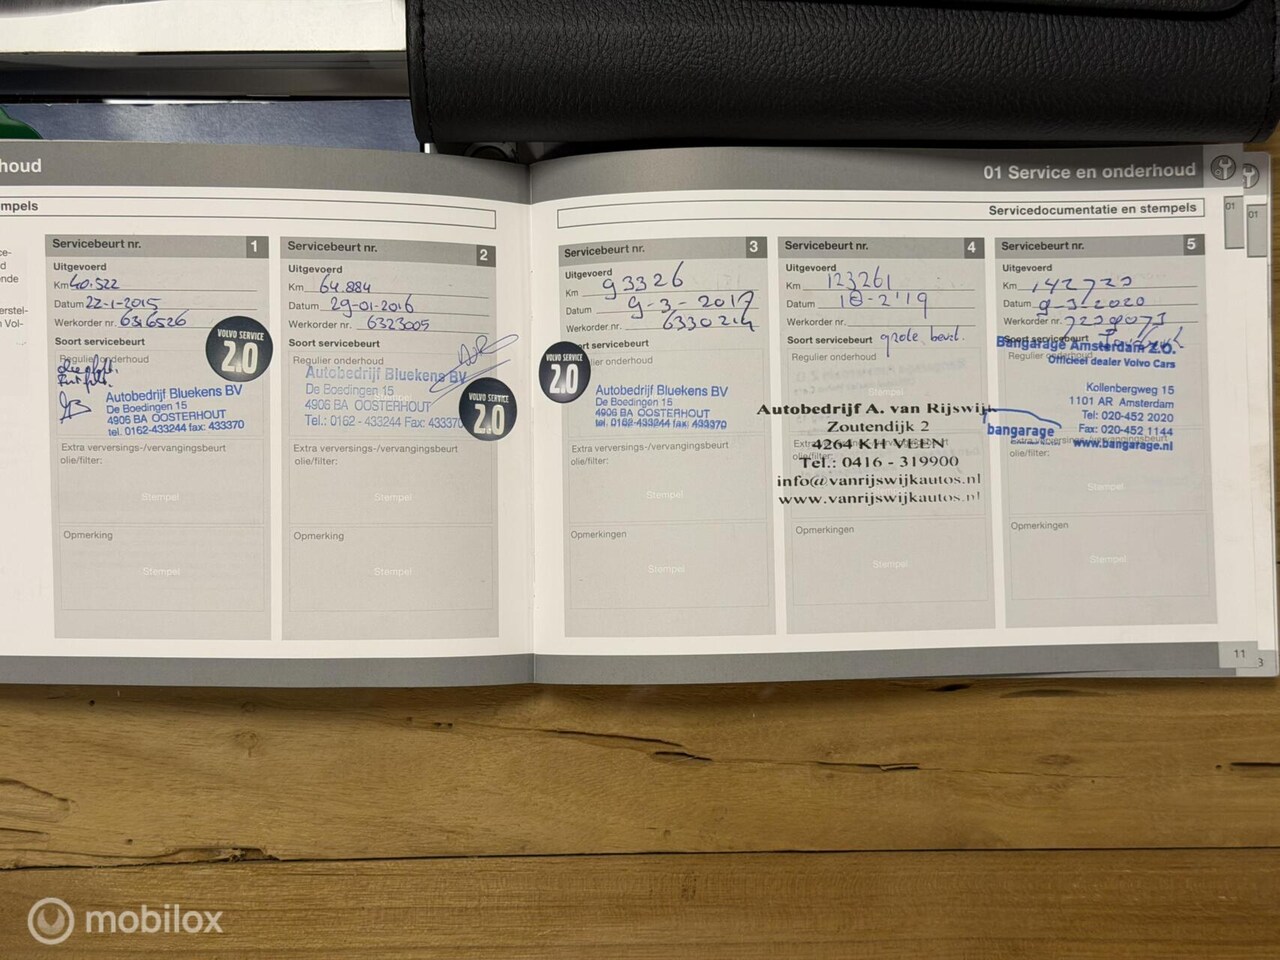 houd
mpels
Servicebeurt nr. 1
Uitgevoerd
Km 40.522
Datum 22-1-2015
Werkorder nr. 6316526
Soort servicebeurt
Regulier onderhoud
VOLVO SERVICE
2.0
Autobedrijf Bluekens BV
De Boedingen 15
4906 BA OOSTERHOUT
tel. 0162-433244 fax: 433370
Extra verversings-/vervangingsbeurt
olie/filter:
Stempel
Opmerking
Stempel
Servicebeurt nr. 2
Uitgevoerd
Km 64.884
Datum 29-01-2016
Werkorder nr. 6323005
Soort servicebeurt
Regulier onderhoud
Autobedrijf Bluekens BV
De Boedingen 15
4906 BA OOSTERHOUT
Tel.: 0162 - 433244 Fax: 433370
VOLVO SERVICE
2.0
Extra verversings-/vervangingsbeurt
olie/filter:
Stempel
Opmerking
Stempel
01 Service en onderhoud
Servicedocumentatie en stempels
01
01
Servicebeurt nr. 3
Uitgevoerd
Km 93326
Datum 9-3-2017
Werkorder nr.
Soort servicebeurt
onderhoud
VOLVO SERVICE
2.0
Autobedrijf Bluekens BV
De Boedingen 15
4906 BA OOSTERHOUT
tel. 0162-433244 fax: 433370
Extra verversings-/vervangingsbeurt
olie/filter:
Stempel
Opmerkingen
Stempel
Servicebeurt nr. 4
Uitgevoerd
Km 123261
Datum
Werkorder nr.
Soort servicebeurt grote beurt.
Regulier onderhoud
Autobedrijf A. van Rijswijk
Zoutendijk 2
4264 KH VEEN
Tel.: 0416 - 319900
info@vanrijswijkautos.nl
www.vanrijswijkautos.nl
Opmerkingen
Stempel
Servicebeurt nr. 5
Uitgevoerd
Km
Datum 9-3-2020
Werkorder nr.
Soort servicebeurt
Bangarage Amsterdam Z.O.
Officieel dealer Volvo Cars
Regulier onderhoud
Kollenbergweg 15
1101 AR Amsterdam
Tel: 020-452 2020
Fax: 020-452 1144
www.bangarage.nl
bangarage
Extra verversings-/vervangingsbeurt
olie/filter:
Stempel
Opmerkingen
Stempel
11
3
mobilox